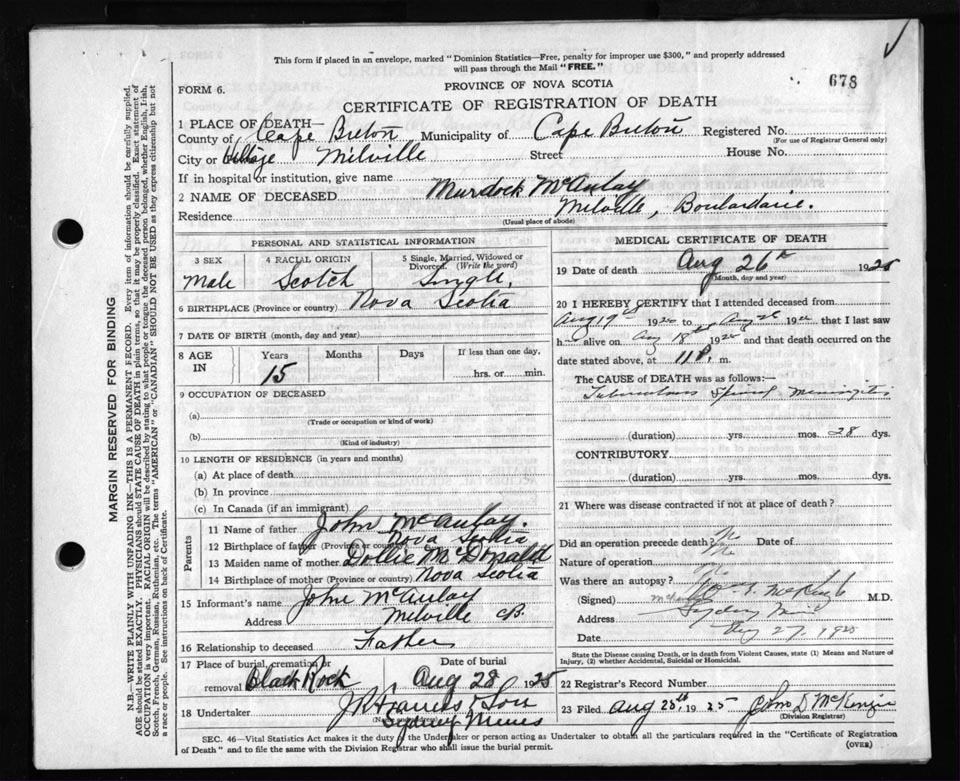 This form if placed in an envelope, marked "Dominion Statistics—Free, penalty for improper use $300," and properly addressed
will pass through the Mail "FREE."
678
FORM 6.
PROVINCE OF NOVA SCOTIA
CERTIFICATE OF REGISTRATION OF DEATH
1 PLACE OF DEATH—
County of Cape Breton Municipality of Cape Breton Registered No.
(For use of Registrar General only)
City or Village Milville Street House No.
If in hospital or institution, give name
2 NAME OF DECEASED Murdock McAulay
Residence Milville, Boulardarie.
(Usual place of abode)
PERSONAL AND STATISTICAL INFORMATION
3 SEX 4 RACIAL ORIGIN 5 Single, Married, Widowed or
Divorced. (Write the word)
Male Scotch Single,
6 BIRTHPLACE (Province or country) Nova Scotia
7 DATE OF BIRTH (month, day and year)
8 AGE IN Years Months Days If less than one day,
15 hrs. or min.
9 OCCUPATION OF DECEASED
(a)
(Trade or occupation or kind of work)
(b)
(Kind of industry)
10 LENGTH OF RESIDENCE (in years and months)
(a) At place of death
(b) In province
(c) In Canada (if an immigrant)
Parents
11 Name of father John McAulay.
12 Birthplace of father (Province or country) Nova Scotia
13 Maiden name of mother Dollie McDonald
14 Birthplace of mother (Province or country) Nova Scotia
15 Informant's name John McAulay
Address Milville CB.
16 Relationship to deceased Father
17 Place of burial, cremation or Date of burial
removal Black Rock Aug 28 1925
18 Undertaker & Son
Sydney Mines
MEDICAL CERTIFICATE OF DEATH
19 Date of death Aug 26th 1925
(Month, day and year)
20 I HEREBY CERTIFY that I attended deceased from
Aug 19th 192 to Aug 192 that I last saw
h alive on Aug 18th 1925 and that death occurred on the
date stated above, at 11 P. m.
The CAUSE OF DEATH was as follows:—
Tuberculous Spinal Meningitis
(duration) yrs. mos. 28 dys.
CONTRIBUTORY.
(duration) yrs. mos. dys.
21 Where was disease contracted if not at place of death?
Did an operation precede death? No Date of
Nature of operation No
Was there an autopsy? No
(Signed) M.D.
Address Sydney Mines
Date Aug 27, 1925
State the Disease causing Death, or in death from Violent Causes, state (1) Means and Nature of
Injury, (2) whether Accidental, Suicidal or Homicidal.
22 Registrar's Record Number
23 Filed Aug 28th, 1925 John D McKenzie
(Division Registrar)
SEC. 46—Vital Statistics Act makes it the duty of the Undertaker or person acting as Undertaker to obtain all the particulars required in the "Certificate of Registration
of Death" and to file the same with the Division Registrar who shall issue the burial permit.
(OVER)
MARGIN RESERVED FOR BINDING
N.B.—WRITE PLAINLY WITH UNFADING INK—THIS IS A PERMANENT RECORD. Every item of information should be carefully supplied.
AGE should be stated EXACTLY. PHYSICIANS should STATE CAUSE OF DEATH in plain terms, so that it may be properly classified. Exact statement of
OCCUPATION is very important. RACIAL ORIGIN will be described by stating to what people or tongue the deceased person belonged, whether English, Irish,
Scotch, French, German, Russian, Ruthenian, etc. The terms "AMERICAN" or "CANADIAN" SHOULD NOT BE USED as they express citizenship but not
a race or people. See instructions on back of Certificate.